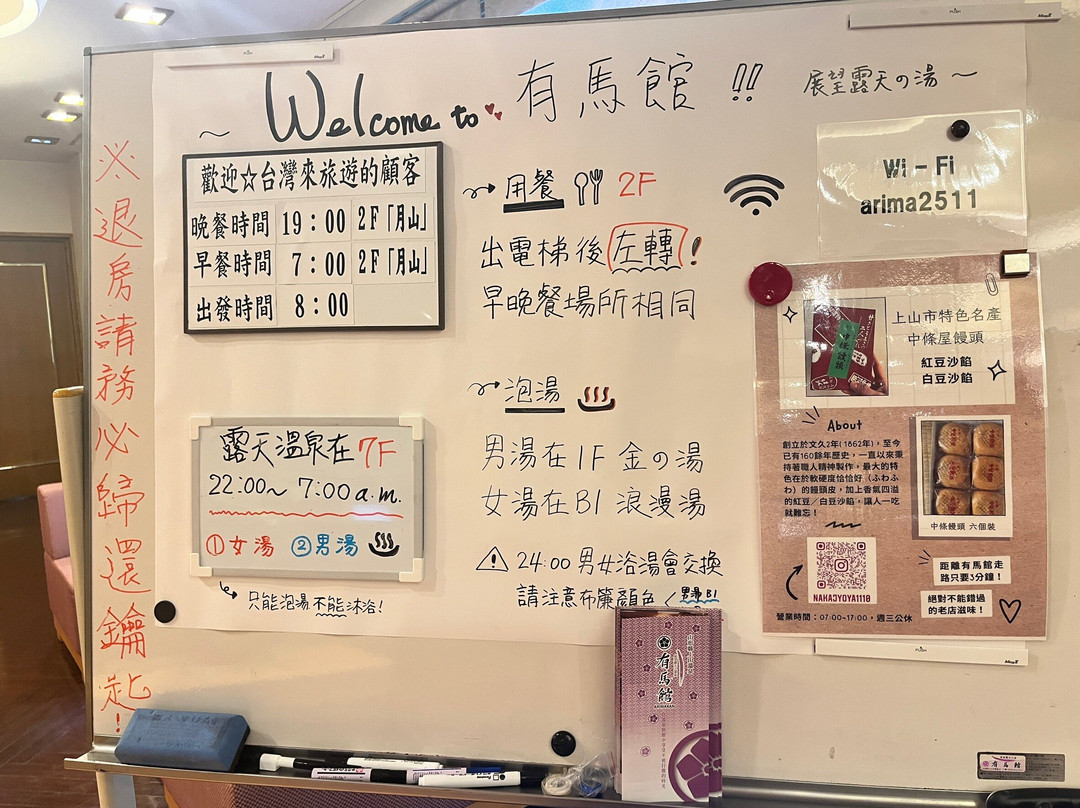 ~ Welcome to 有馬館!! 展望露天の湯~
※退房請務必歸還鑰匙!
歡迎☆台灣來旅遊的顧客
晚餐時間 19:00 2F「月山」
早餐時間 7:00 2F「月山」
出發時間 8:00
用餐 2F
出電梯後左轉!
早晚餐場所相同
泡湯
男湯在1F 金の湯
女湯在B1 浪漫湯
24:00 男女浴湯會交換
請注意布簾顏色
男湯B1
露天溫泉在7F
22:00~ 7:00a.m.
①女湯 ②男湯
只能泡湯不能沐浴!
Wi-Fi
arima2511
上山市特色名產
中條屋饅頭
紅豆沙餡
白豆沙餡
About
創立於文久2年(1862年),至今
已有160餘年歷史,一直以來秉
持著職人精神製作,最大的特
色在於軟硬度恰恰好(ふわふ
わ)的饅頭皮,加上香氣四溢
的紅豆/白豆沙餡,讓人一吃
就難忘!
中條饅頭 六個裝
NAKAJYOYA1110
距離有馬館走
路只要3分鐘!
絕對不能錯過
的老店滋味!
營業時間:07:00~17:00,週三公休
有馬館
ARIMAKAN
有馬館